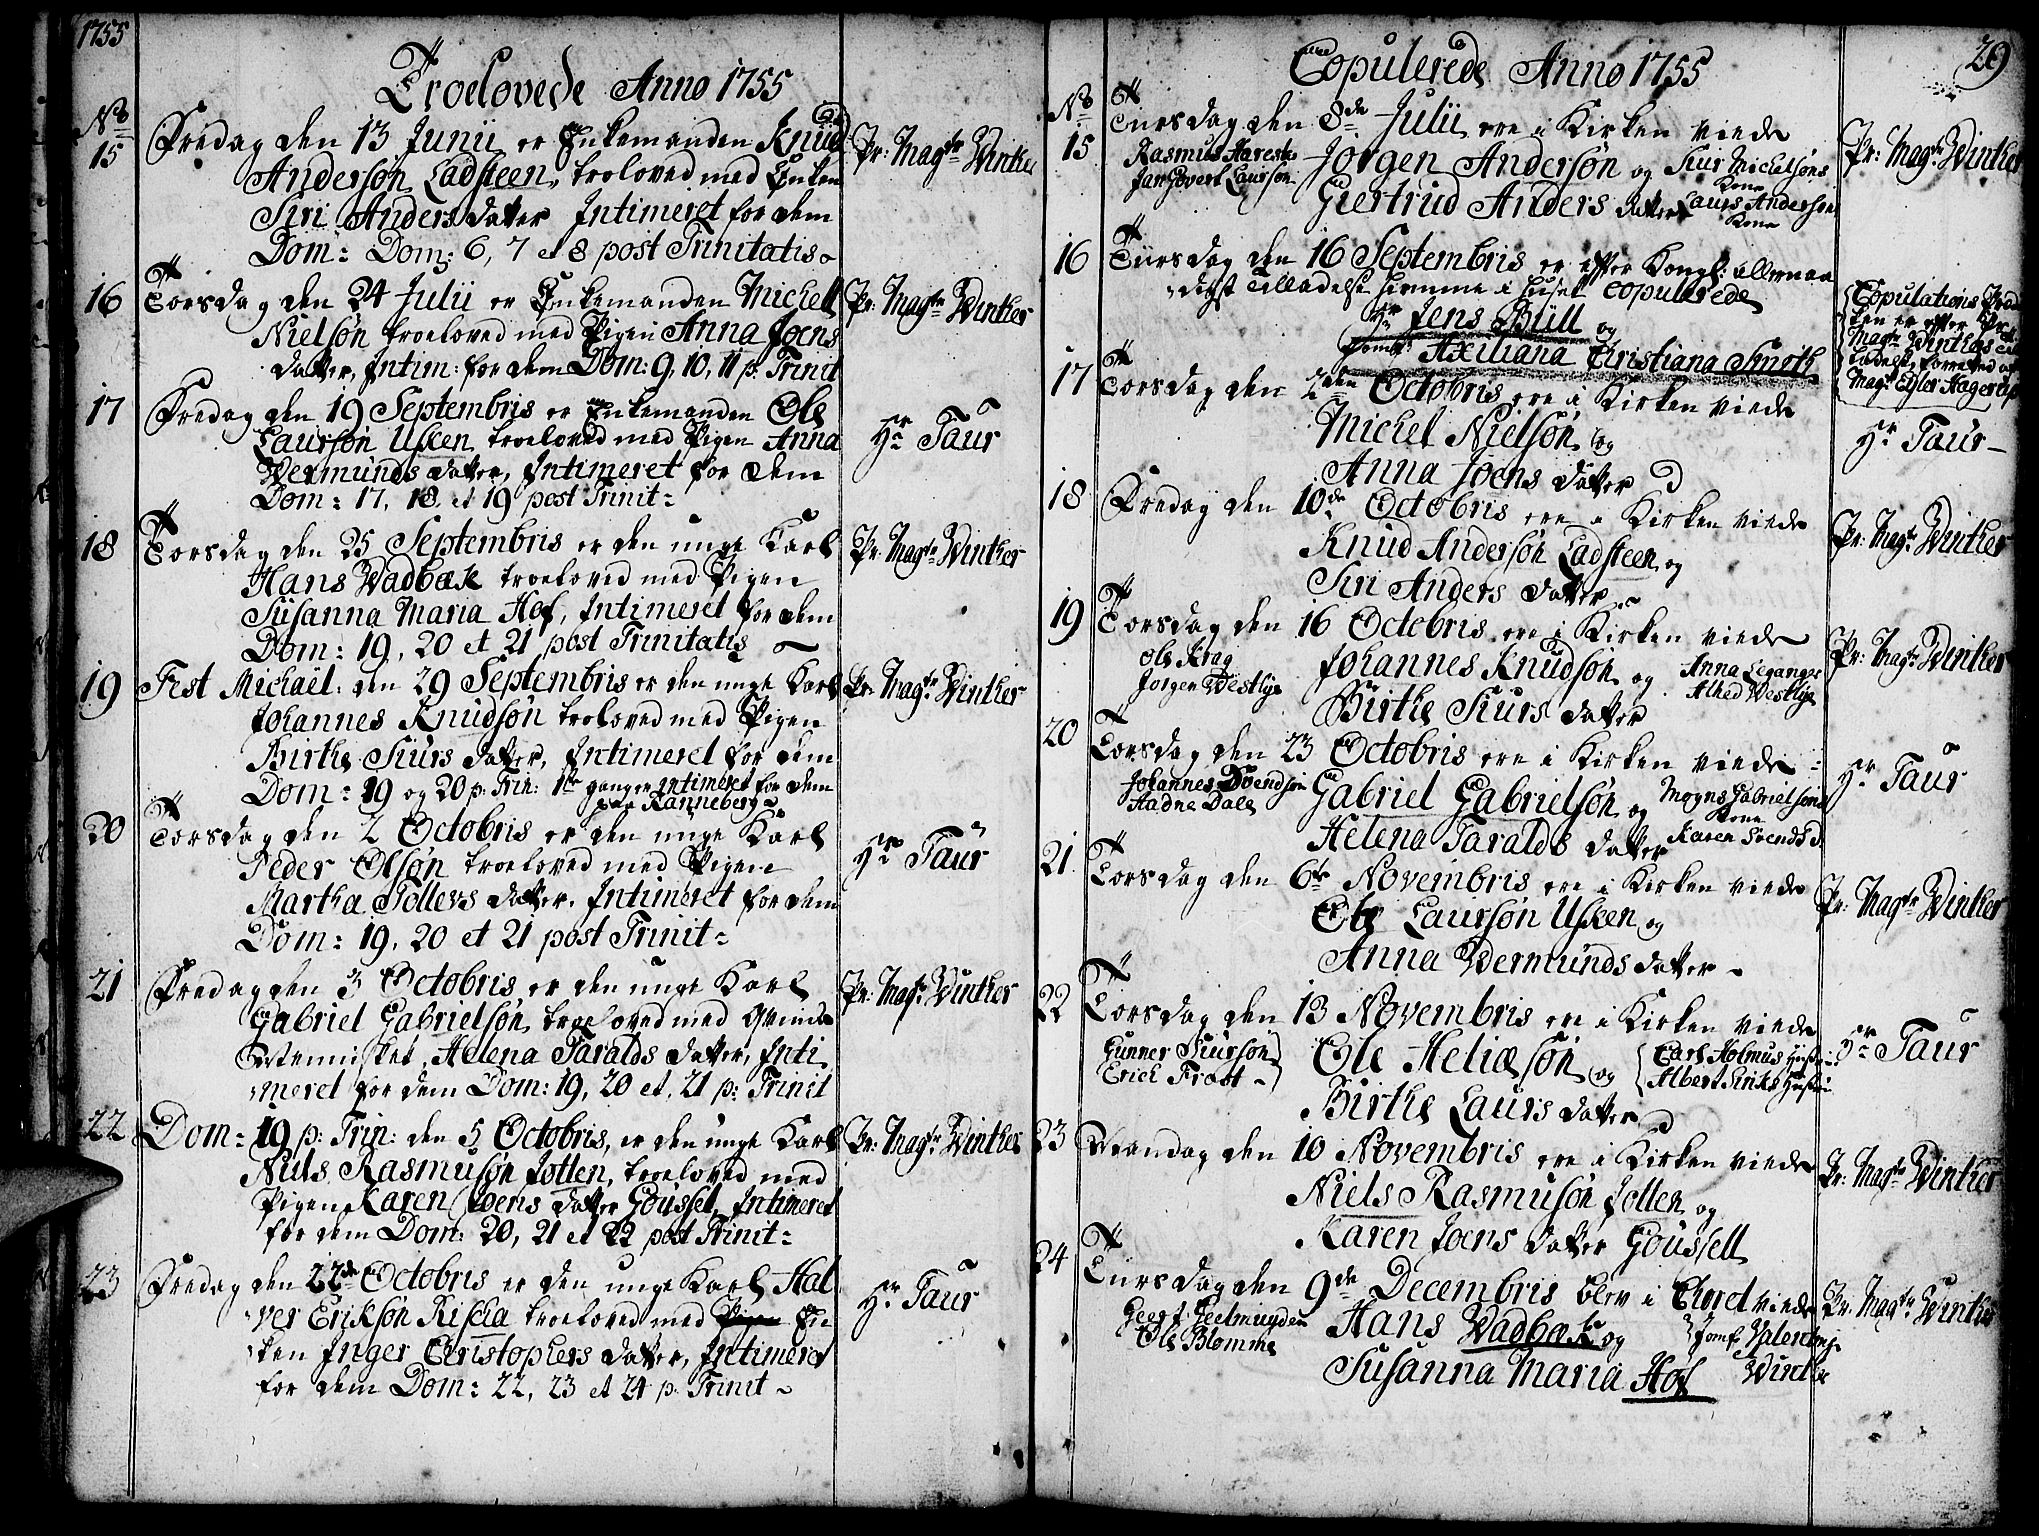 1755
Troelovede Anno 1755
No
15
Fredag den 13 Junii er Enkemanden Knud
Anderson Ladsteen, troloved med Enken
Siri Anders datter Intimeret for dem
Dom: Dom: 6, 7 et 8 post Trinitatis
Pr: Magr Winther
16
Torsdag den 24 Julii er Enkemanden Michell
Nielsøn troeloved med Pigen Anna Joens
datter, Intim: for dem Dom: 9, 10, 11 p. Trinit
Pr: Magr Winther
17
Fredag den 19 Septembris er Enkemanden Ole
Laursøn Usken troeloved med Pigen Anna
Wermunds datter, Intimeret for dem
Dom: 17, 18, et 19 post Trinit:
Hr Taur
18
Torsdag den 25 Septembris er den unge Karl
Hans Wadbæk troeloved med Pigen
Susanna Maria Hof, Intimeret for dem
Dom: 19, 20 et 21 post Trinitatis
Pr: Magr Winther
19
Fest Michaël: den 29 Septembris er den unge Karl
Johannes Knudsøn troloved med Pigen
Birthe Siurs datter, Intimeret for dem
Dom: 19 og 20 p: Trin: 1te gangen intimeret for dem
paa Ranneberg
Pr: Magr Winther
20
Torsdag den 2 Octobris er den unge Karl
Peder Olsøn troeloved med Pigen
Martha Tollevs datter. Intimeret for dem
Dom: 19, 20 et 21 post Trinit:
Hr Taur
21
Fredag den 3 Octobris er den unge Karl
Gabriel Gabrielsøn troeloved med Qvinde
Mennisket, Helena Taralds datter, Inti
meret for dem Dom: 19, 20 et. 21 p: Trinit
Pr: Magr Winther
22
Dom: 19 p: Trin: den 5 Octobris, er den unge Karl
Niels Rasmusøn Jolten, troeloved med
Pigen Karen Joens datter Goussel, Intimeret
for dem Dom: 20, 21 et 22 post Trinit:
Pr: Magr Winther
23
Fredag den 22de Octobris er den unge Karl Hal
ver Eriksøn Riska troeloved med Pigen En
ken Inger Christophers datter, Intimeret
for dem Dom: 22, 23 et 24 p. Trinit
Hr Taur
29
Copulerede Anno 1755
No
15
Tirsdag den 8de Julii ere i Kirken viede
Rasmus Haarestø Jorgen Andersøn og Siur Michelsøns
Kone
Jan Govert Laursøn. Giertrud Anders datter Laurs Andersøns
Kone
Pr: Magr Winther
16
Tiirsdag den 16 Septembris er efter Kongl: allernaa
digst Tilladelse hiemme i Huset copulerede
Hr Jens Blill og
Jomf: Axiliana Christiana Smith
Copulations
er efter Pr
Magr Winthers Til
ladelse forretted af
Magr Eyler Hagerup
17
Torsdag den 2den Octobris ere i Kirken viede
Michel Nielsøn og
Anna Joens datter
Hr Taur
18
Fredag den 10de Octobris ere i Kirken viede
Knud Andersøn Ladsteen og
Siri Anders datter
Pr: Magr Winther
19
Torsdag den 16 Octobris ere i Kirken viede
Ole Krag Johannes Knudsøn og Anna Leganger
Jorgen Westlye Birthe Siurs datter Alhed Westlye
Pr: Magr Winther
20
Torsdag den 23 Octobris ere i Kirken viede
Johannes Svendsøn Gabriel Gabrielsøn og Mogns Gabrielsøns
Kone
Aadne Dale Helena Taralds datter Karen Svends D
Hr Taur
21
Torsdag den 6te Novembris ere i Kirken viede
Ole Laursøn Usken og
Anna Wermunds datter
Pr: Magr Winther
22
Torsdag den 13 Novembris ere i Kirken viede
Gunner Siursøn Ole Heliæsøn og Carl Holmus Hust
Erick Frost Birthe Laurs datter Albert Siriks Hust
Hr Taur
23
Mandag den 10 Novembris ere i Kirken viede
Niels Rasmusøn Jolten og
Karen Joens datter Goussell
Pr: Magr Winther
24
Tirsdag den 9de Decembris blev i Choret viede
Geert Geelmuyden Hans Wadbæk og Jomf Valentinje
Ole Blomme Susanna Maria Hof Winther
Pr: Magr Winther